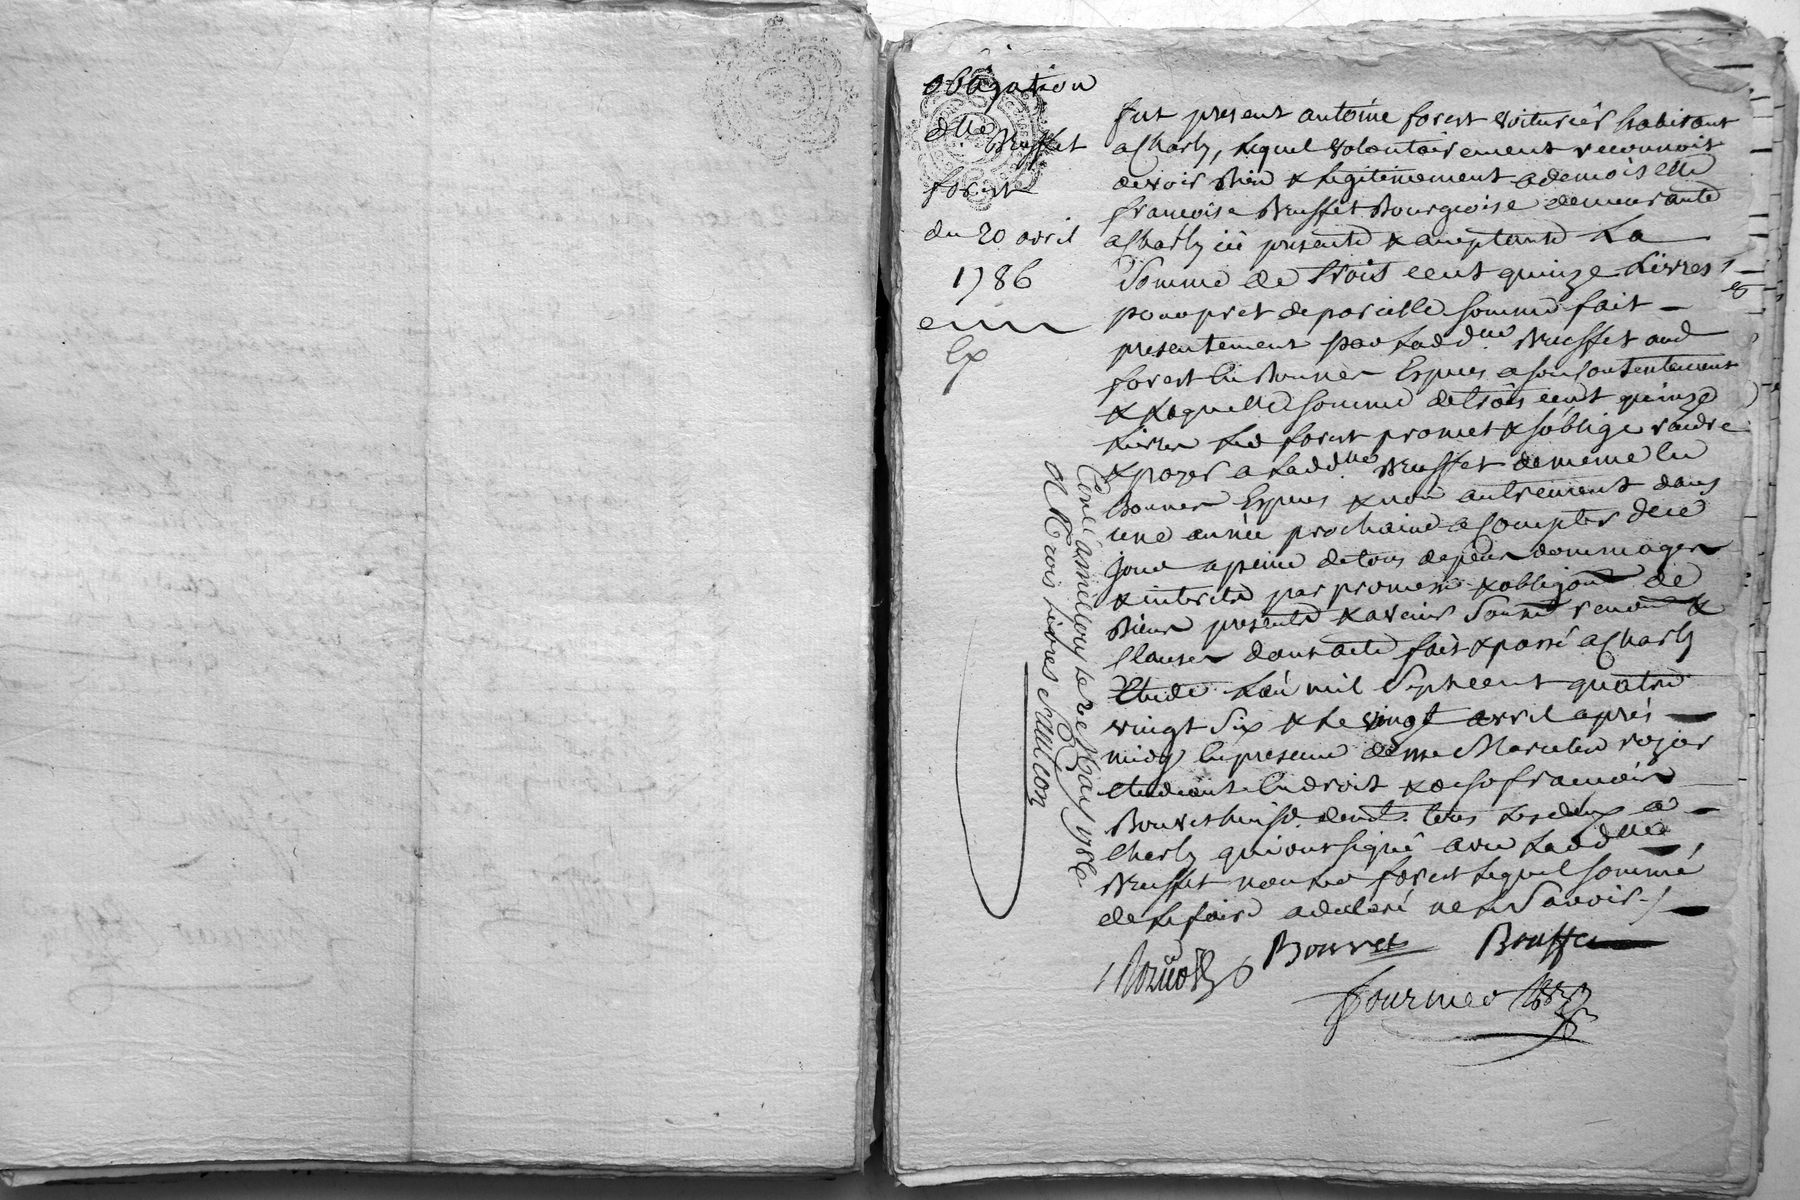 obligation
dlle Bruffet
forest
du 20 avril
1786
fut present antoine forest voiturier habitant
a Charly, lequel volontairement reconnoit
devoir bien & legitimement a demoiselle
francoise Bruffet Bourgeoise demeurante
a Charly icy presente & acceptante La
Somme de trois cent quinze livres
pour pret de pareille somme fait
presentement par Ladd lle Bruffet aud
forest en bonnes Espues a son Contentement
& Laquelle somme de trois cent quinze
Livres Led forest promet & soblige rendre
& payer a Laddlle Bruffet de meme en
bonnes Espues & non autrement dans
une année prochaine a Compter de ce
jour a peine de tous depens dommages
& interets par promesse & obligaon de
Biens presents & avenir Soumis renon &
Clauses dont acte fait & passé a Charly
Etude L'an mil Sept cent quatre
vingt Six & Le vingt avril apres
midy En presence de me Marcelin
etudiant En droit & de sr francois
Bouvet huissr demts. tous Les deux a
Charly qui ont signé avec Laddlle
Bruffet non Led forest Lequel sommé
de Le faire a declaré ne Le Savoir
Bouvet Bruffet
fournier
Conlé a millery le 2e May 1786
R trois Livres